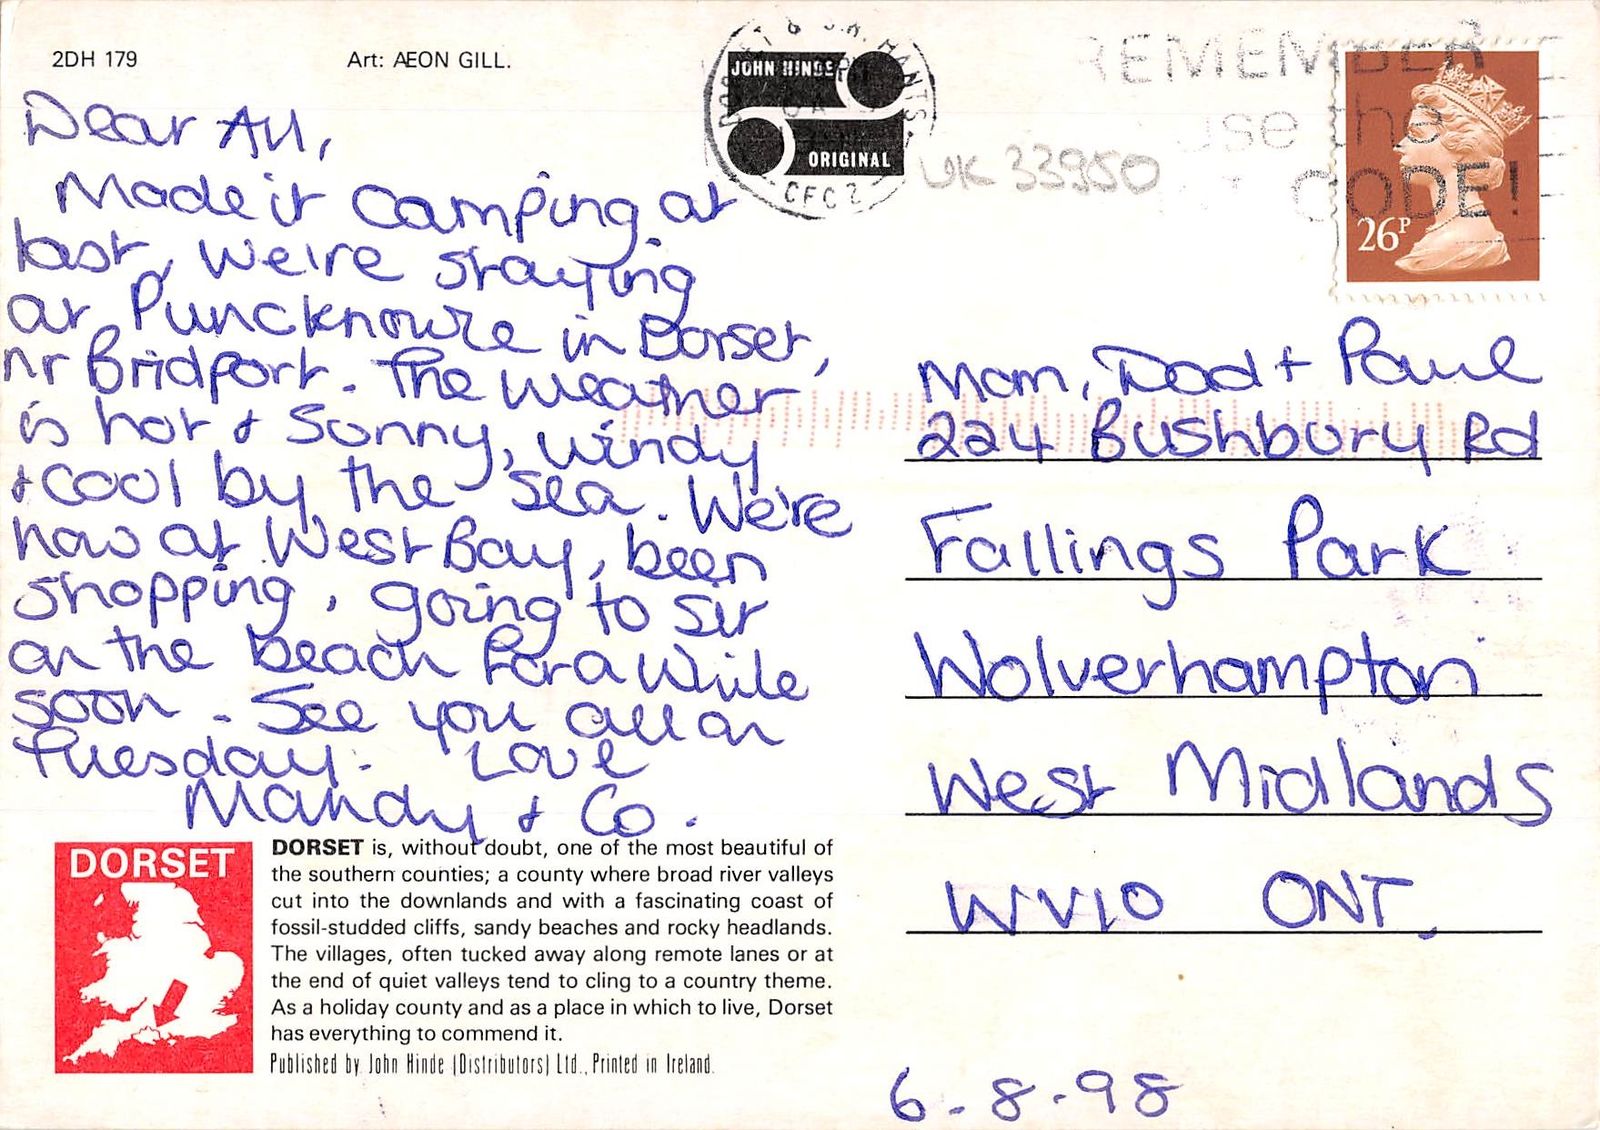 2DH 179
Art: ÆON GILL.
Dear All,
Made it camping at
last, we're staying
at Puncknowle in Dorset,
nr Bridport. The weather
is hot & sunny, windy
& cool by the sea. We're
now at West Bay, been
shopping, going to sit
on the beach for a while
soon. See you all on
Tuesday. Love
Mandy & Co.
DORSET
DORSET is, without doubt, one of the most beautiful of
the southern counties; a county where broad river valleys
cut into the downlands and with a fascinating coast of
fossil-studded cliffs, sandy beaches and rocky headlands.
The villages, often tucked away along remote lanes or at
the end of quiet valleys tend to cling to a country theme.
As a holiday county and as a place in which to live, Dorset
has everything to commend it.
Published by John Hinde (Distributors) Ltd., Printed in Ireland.
JOHN HINDE
ORIGINAL
& S.W. HANTS.
CFC2
UK 33950
REMEMBER
use the
CODE!
26P
Mom, Dad + Paul
224 Bushbury Rd
Fallings Park
Wolverhampton
West Midlands
WV10 ONT.
6.8.98